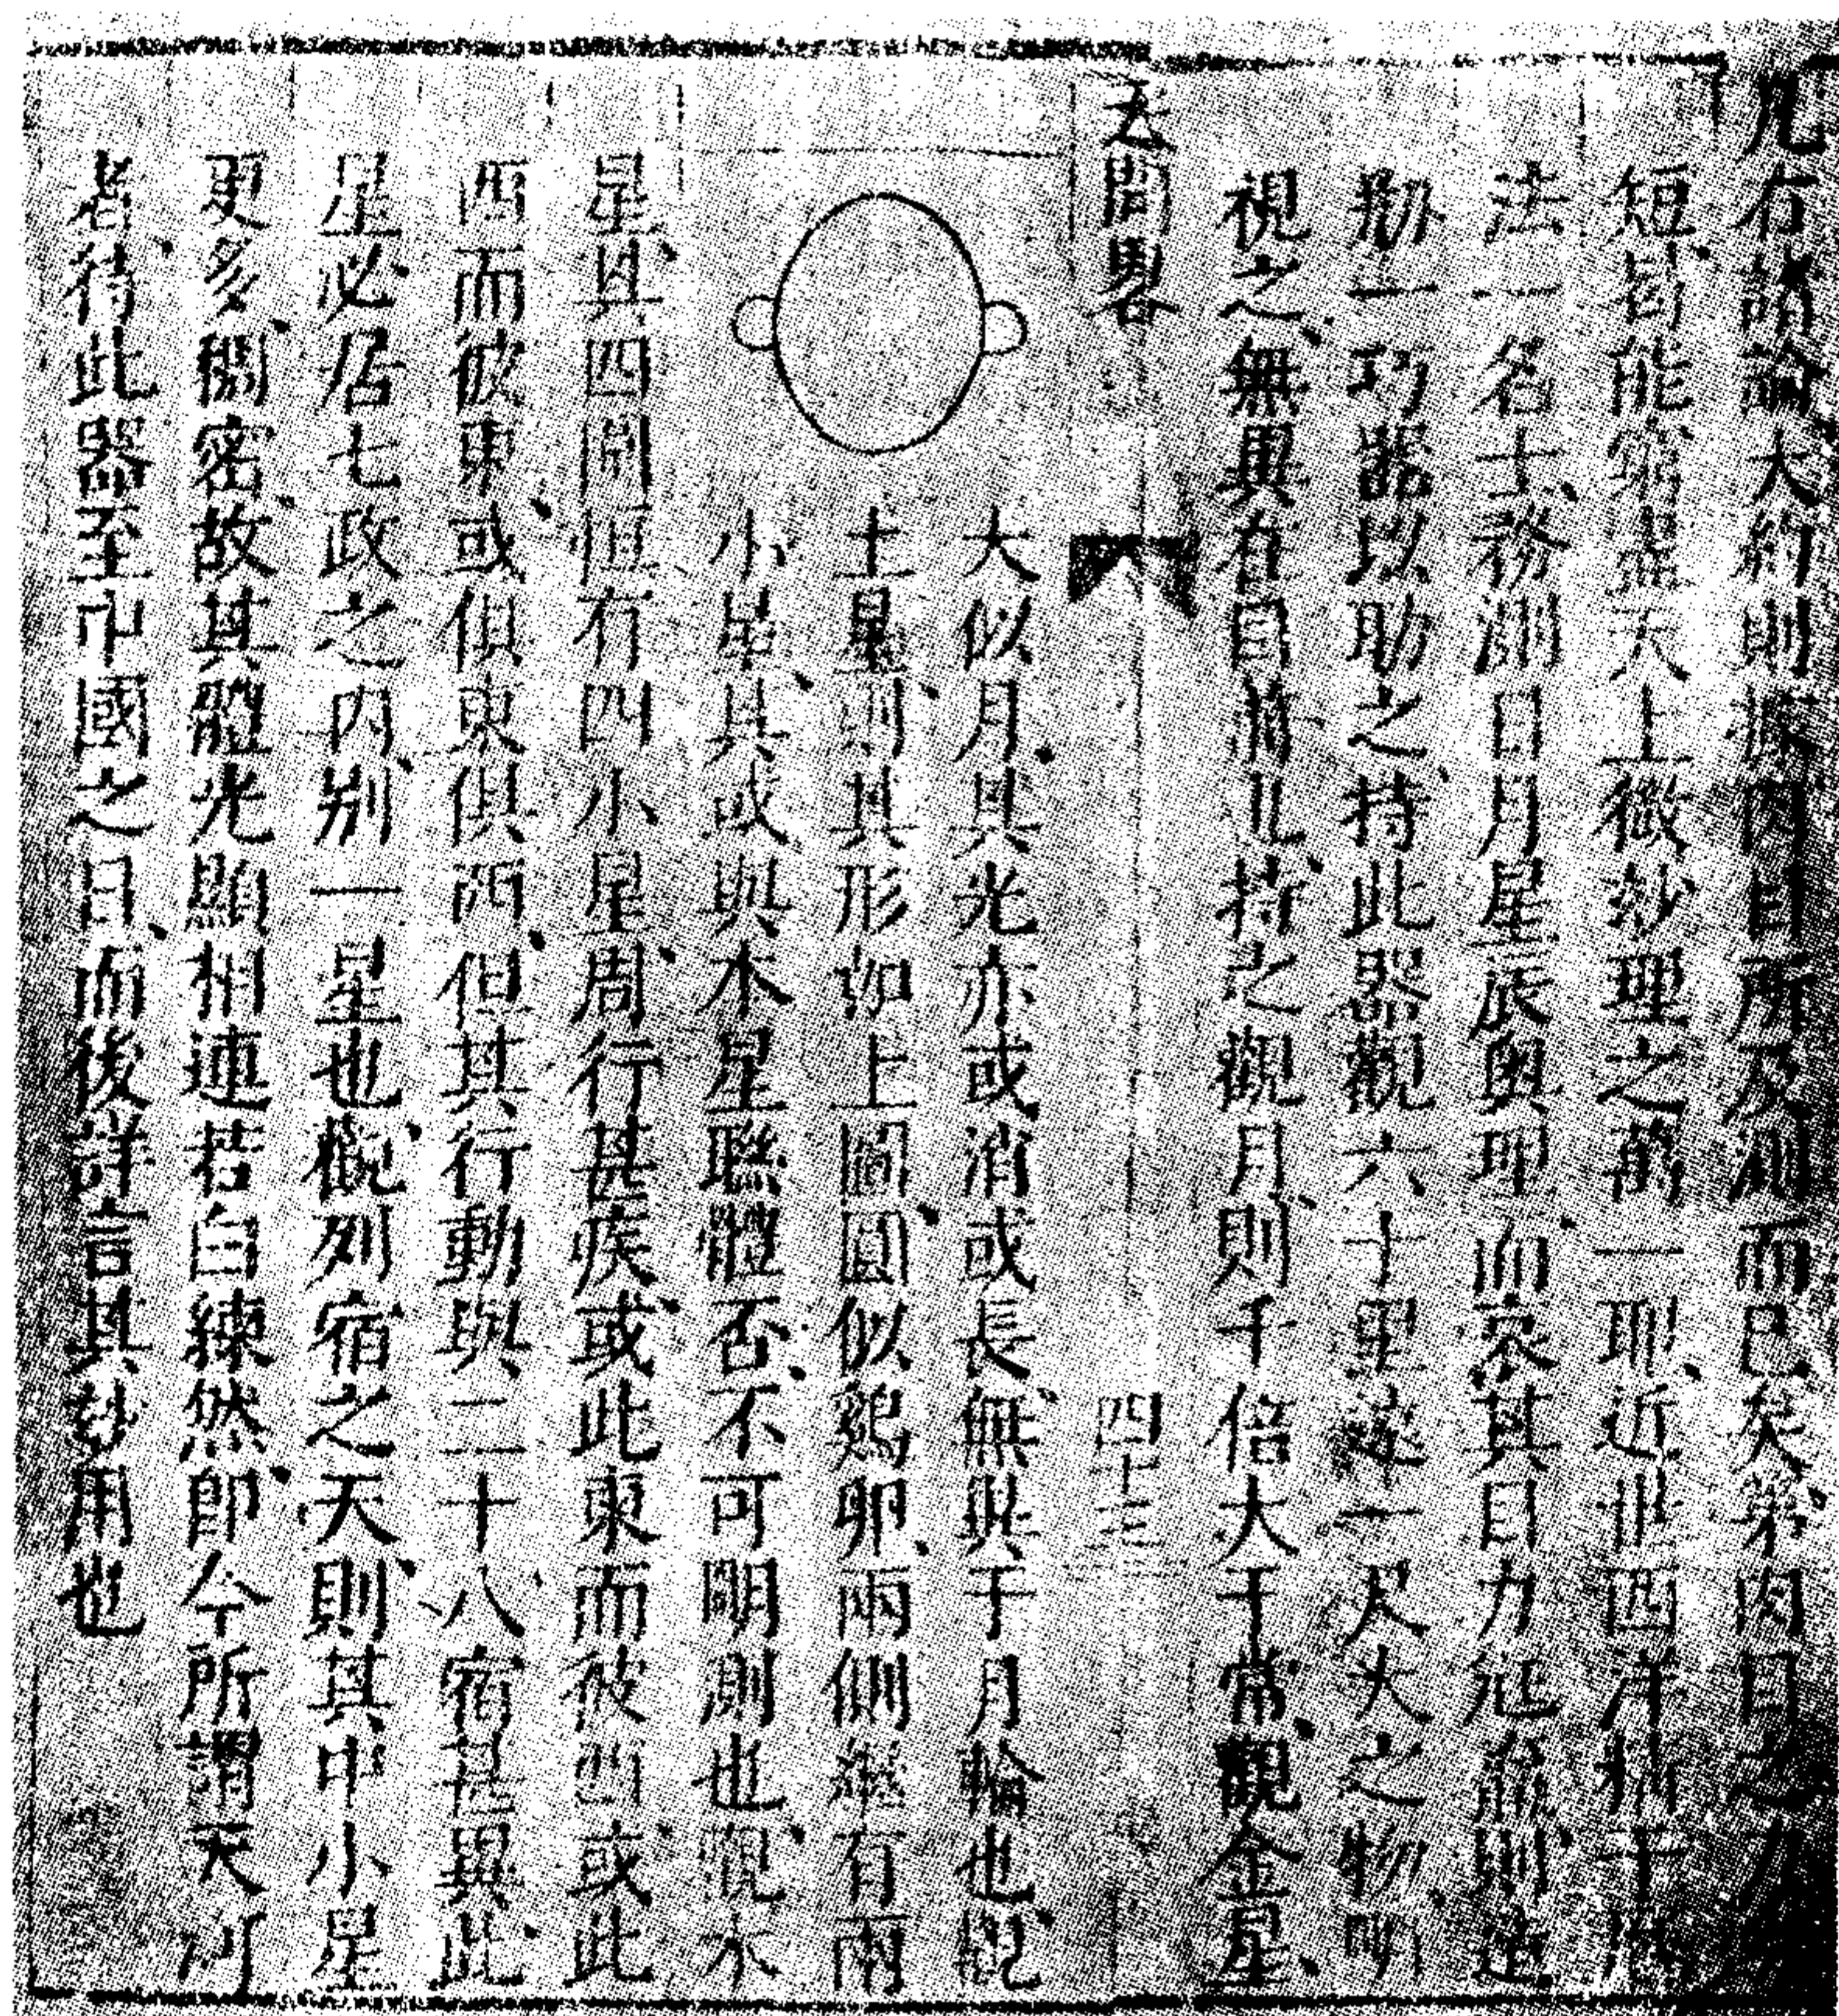 凡右諸論大約則據肉目所及測而已矣第肉目之力
短曷能窮盡天上微妙理之萬一耶近世西洋精于曆
法一名士務測日月星辰奧理而哀其目力尪羸則造
刱一巧器以助之持此器觀六十里遠一尺大之物明
視之無異在目前也持之觀月則千倍大于常觀金星
天問畧
四十三
大似月其光亦或消或長無異于月輪也觀
土星則其形如上圖圓似鷄卵兩側繼有兩
小星其或與本星聯體否不可明測也觀木
星其四圍恒有四小星周行甚疾或此東而彼西或此
西而彼東或俱東俱西但其行動與二十八宿甚異此
星必居七政之內別一星也觀列宿之天則其中小星
更多稠密故其體光顯相連若白練然即今所謂天河
者待此器至中國之日而後詳言其妙用也